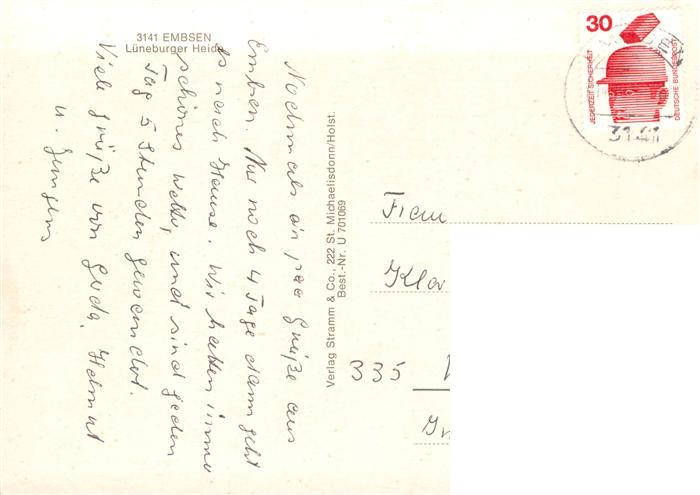 3141 EMBSEN
Lüneburger Heide
Nochmals ein paar Grüße aus
Embsen. Nur noch 4 Tage dann geht
es nach Hause. Wir hatten immer
schönes Wetter, und sind jeden
Tag 5 Stunden gewandert.
Viele Grüße von Gerda, Helmut
u. Jürgen
Verlag Stramm & Co., 222 St. Michaelisdonn/Holst.
Best.-Nr. U 701069
30
JEDERZEIT SICHERHEIT
DEUTSCHE BUNDESPOST
3141
Frau
335